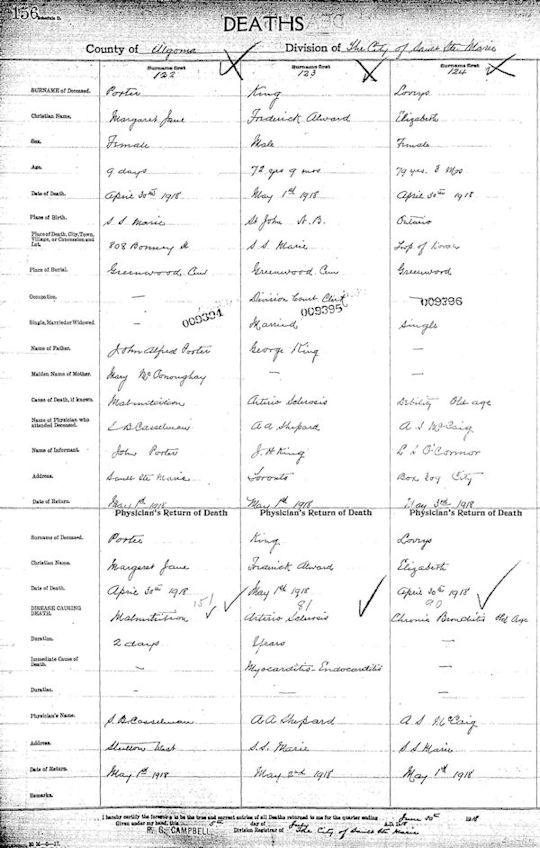 156
Schedule D.
DEATHS
County of Algoma Division of The City of Sault Ste Marie
Surname first Surname first Surname first
122 123 124
SURNAME of Deceased. Porter King Lovrys
Christian Name. Margaret Jane Fredrick Alward Elizabeth
Sex. Female Male Female
Age. 9 days 72 yrs 9 mos 79 yrs. 3 Mos
Date of Death. April 30th 1918 May 1st 1918 April 30th 1918
Place of Birth. S. S. Marie St John N. B. Ontario
Place of Death, City, Town, Village, or Concession and Lot. 808 Bonney St S S Marie Twp of
Place of Burial. Greenwood Cem Greenwood Cem Greenwood
Occupation. — Division Court Clerk —
009394 009395 009396
Single, Married or Widowed Married Single
Name of Father. John Alfred Porter George King —
Maiden Name of Mother. Mary McConoughay — —
Cause of Death, if known. Malnutrition Arterio Sclerosis Debility Old age
Name of Physician who attended Deceased. S B Casselman A A Shepard A S McCaig
Name of Informant. John Porter J. H King L O'Connor
Address. Sault Ste Marie Toronto Box City
Date of Return. May 1st 1918 May 1st 1918 May 3rd 1918
Physician's Return of Death Physician's Return of Death Physician's Return of Death
Surname of Deceased. Porter King Lovrys
Christian Name. Margaret Jane Fredrick Alward Elizabeth
Date of Death. April 30th 1918 May 1st 1918 April 30th 1918
151 81 90
DISEASE CAUSING DEATH. Malnutrition Arterio Sclerosis Chronic Bronchitis Old Age
Duration. 2 days Years —
Immediate Cause of Death. — Myocarditis-Endocarditis —
Duration. — — —
Physician's Name. S. B Casselman A A Shepard A S McCaig
Address. Steelton West S.S. Marie S S Marie
Date of Return. May 1st 1918 May 2nd 1918 May 1st 1918
Remarks.
I hereby certify the foregoing to be the true and correct entries of all Deaths returned to me for the quarter ending June 30th 1918
Given under my hand, this 5th day of July A.D. 1918
R. G. CAMPBELL Division Registrar of The City of Sault Ste Marie